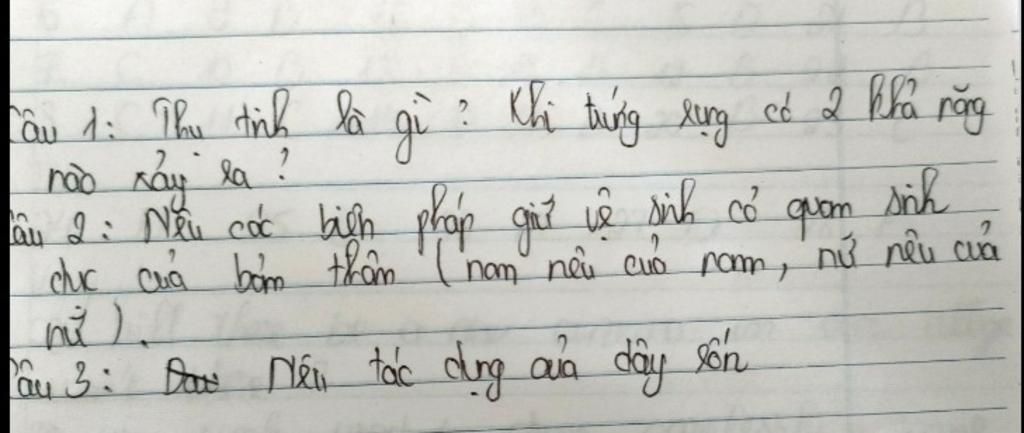 Câu 1: Thụ tinh là gì? Khi trứng rụng có 2 khả năng
nào xảy ra?
Câu 2: Nêu các biện pháp giữ vệ sinh cơ quan sinh
dục của bản thân (nam nêu của nam, nữ nêu của
nữ).
Câu 3: Nêu tác dụng của dây rốn